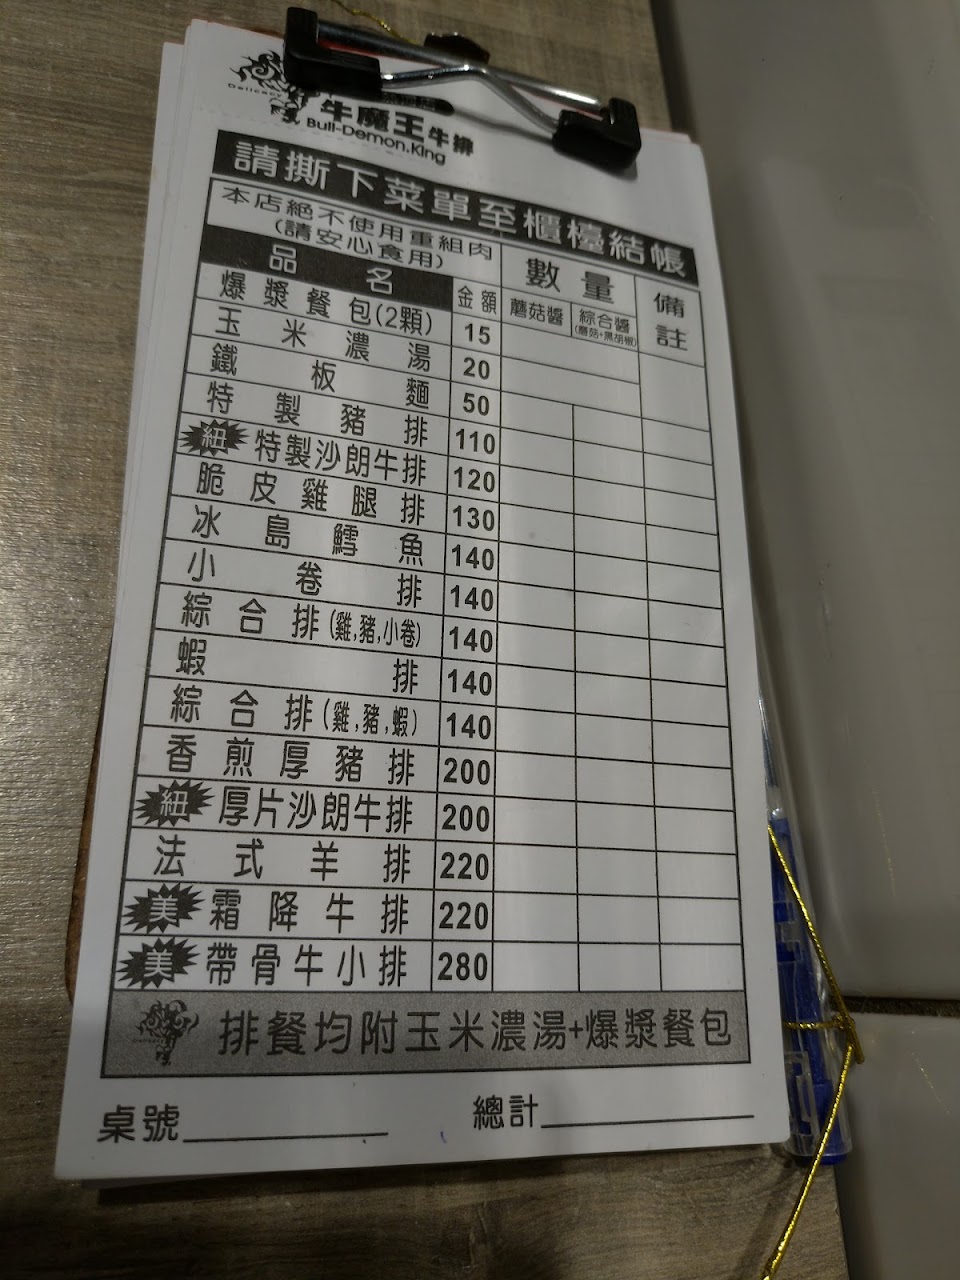 Delicacy
牛魔王牛排
Bull-Demon.King
請撕下菜單至櫃檯結帳
本店絕不使用重組肉
(請安心食用)
數量
備註
品名
金額
蘑菇醬
綜合醬
(蘑菇+黑胡椒)
爆漿餐包(2顆) 15
玉米濃湯 20
鐵板麵 50
特製豬排 110
紐 特製沙朗牛排 120
脆皮雞腿排 130
冰島鱈魚 140
小卷排 140
綜合排(雞,豬,小卷) 140
蝦排 140
綜合排(雞,豬,蝦) 140
香煎厚豬排 200
紐 厚片沙朗牛排 200
法式羊排 220
美 霜降牛排 220
美 帶骨牛小排 280
排餐均附玉米濃湯+爆漿餐包
桌號 總計